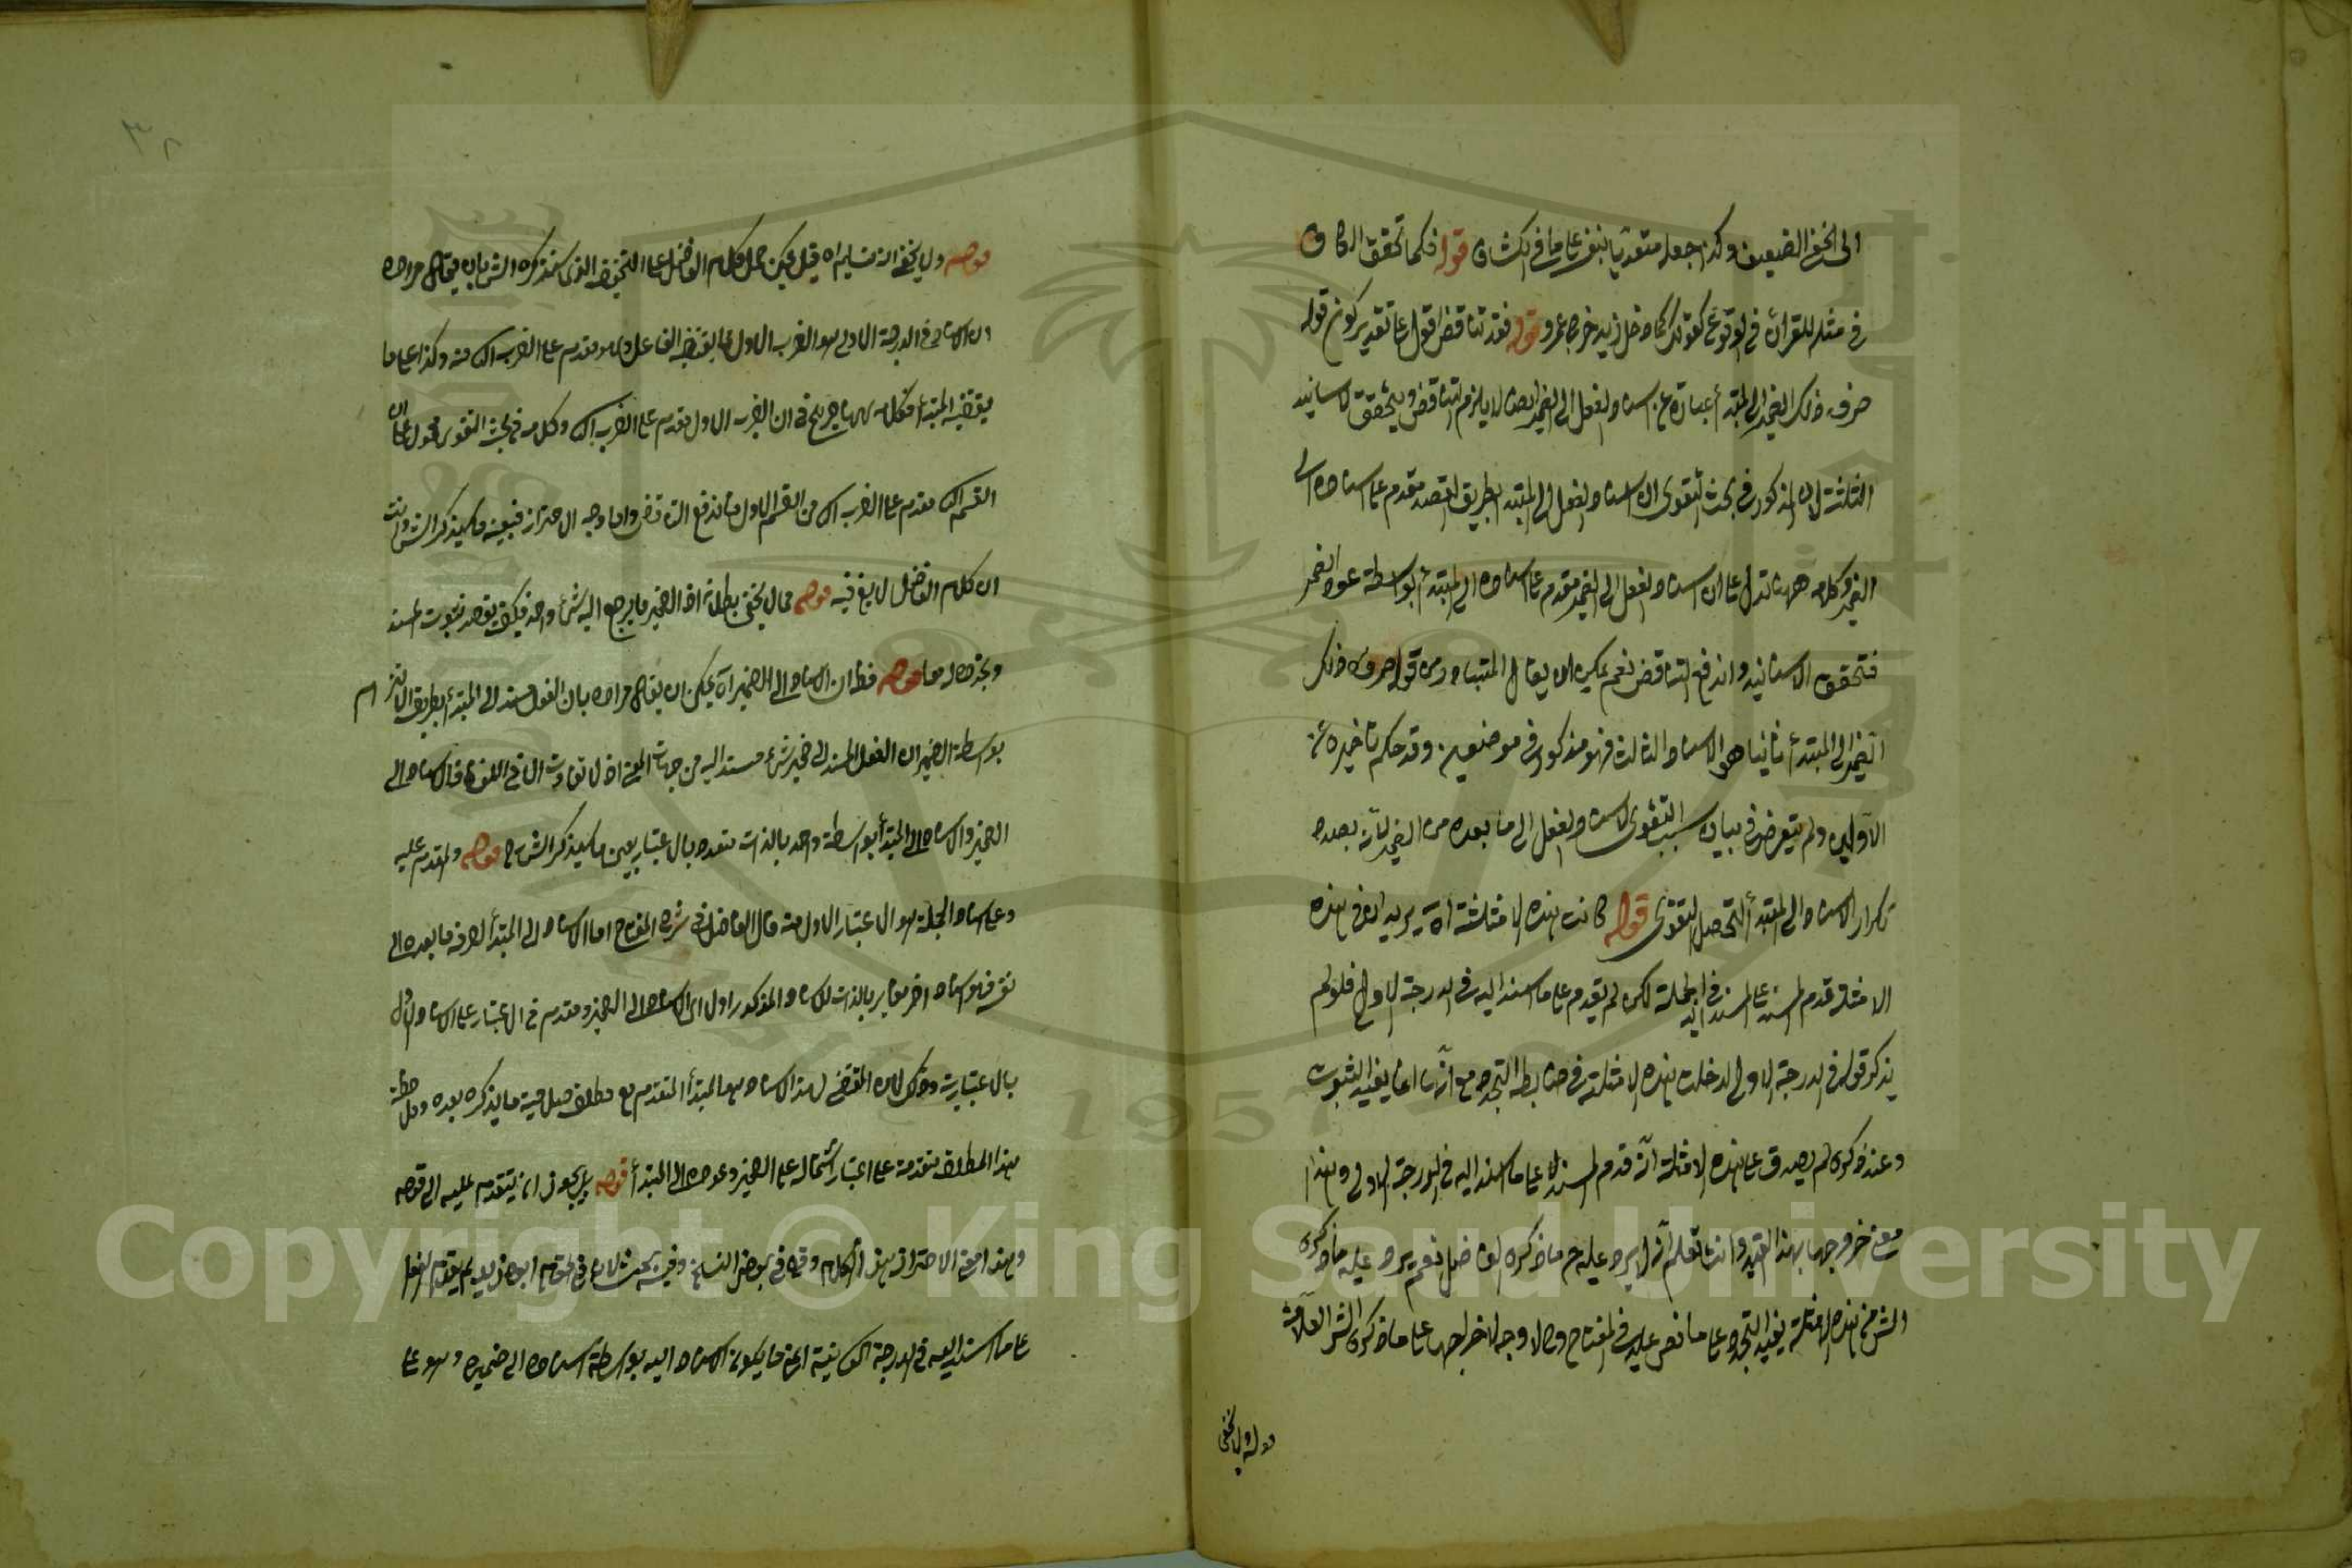 الى الخبر الضعيف وكذا جعله متعديا بنفسه على ما في الكشاف قوله فكما تحقق الكاف
في مثله للقران في الوقوع كقولك كما دخل زيد خرج عمرو قوله فقد تناقض اقول على تقدير كون قوله
صرف ذلك الضمير الى المبتدأ عبارة عن اسناد الفعل الى الضمير ايضا لا يلزم التناقض ويتحقق الاسانيد
الثلثة لان المذكور في بحث التقوى ان اسناد الفعل الى المبتدأ بطريق القصد مقدم على اسناده الى
الضمير وكلامه ههنا تدل على ان اسناد الفعل الى الضمير مقدم على اسناده الى المبتدأ بواسطة عود الضمير
فتحقق الاسانيد واندفع التناقض نعم يمكن ان يقال المتبادر من قوله صرف ذلك
الضمير الى المبتدأ ثانيا هو الاسناد الثالث فهو مذكور في موضعين وقد حكم بتأخيره عن
الاولين ولم يتعرض في بيان سبب التقوى لاسناد الفعل الى ما بعده من الضمير لانه بصدد
تكرار الاسناد الى المبتدأ لتحصيل التقوى قوله كانت هذه الامثلة اه يريد ان في هذه
الامثلة قدم المسند على المسند اليه في الجملة لكن لم يقدم على ما اسند اليه في الدرجة الاولى فلو لم
يذكر قوله في الدرجة الاولى لدخلت هذه الامثلة في ضابطة التجدد مع انها انما يفيد الثبوت
وعند ذكره لم يصدق على هذه الامثلة انه قدم المسند على ما اسند اليه في الدرجة الاولى وهذا
معنى خروجها بهذا القيد وانت تعلم انه لا يرد عليه ح ما ذكره الفاضل نعم يرد عليه ما ذكره
الش من هذه الامثلة يفيد التجدد على ما نص عليه في المفتاح و لا وجه لاخراجها على ما ذكره الش العلامة
قوله ولا يخفى
قوله ولا يخفى ان تسليم اه قيل يمكن حمل كلام الفاضل على التحقيق الذي سنذكره الش بان يقال مراده
ان الاسناد في الدرجة الاولى هو الضرب الاول مما يقتضيه الفاعل وهو مقدم على الضرب الث منه وكذا على ما
يقتضيه المبتدأ فكلامه ههنا صريح في ان الضرب الاول مقدم على الضرب الث وكلامه في بحث التقوى محمول على ان
القسم الث مقدم على الضرب الث من القسم الاول فاندفع التناقض واما وجه الاحتراز فبعينه ما سيذكره الش وانت
ان كلام الفاضل لا يفي فيه قوله مما لا يخفى بطلانه اذ الضمير ما يرجع اليه شئ واحد فكيف يقصد ثبوت المسند
وتجدده له معا قوله فظ ان الاسناد الى الضمير اه يمكن ان يقال مراده بان الفعل مسند الى المبتدأ بطريق الالتزام
بواسطة الضمير ان الفعل المسند الى ضمير شئ مسند اليه من جهة المعنى اذ لا تفاوت الا في اللفظ فالاسناد الى
الضمير والاسناد الى المبتدأ بواسطة واحد بالذات متعدد بالاعتبار بعين ما سيذكره الشارح قوله والمقدم عليه
وعلى اسناد الجملة هو الاعتبار الاول منه قال الفاضل في شرح المفتاح اما الاسناد الى المبتدأ لصرفه ما بعده الى
نفسه فهو اسناد اخر مغاير بالذات للاسناد المذكور اولا اي الاسناد الى الضمير ومقدم في الاعتبار على الاسناد الاول
بالاعتبارية وذلك لان المقتضي لهذا الاسناد هو المبتدأ المتقدم مع مطلق صلاحية ما يذكره بعده وملاحظة
هذا المطلق متقدمة على اعتبار اشتماله على الضمير وعوده الى المبتدأ قوله بل يجوز ان يتقدم عليه الى قوله
وهذا معنى الاحتراز هذا الكلام وقع في بعض النسخ وفيه بحث لان في قام ابوه زيد لم يقدم الفعل
على ما اسند اليه في الدرجة الثانية اعني ما يكون الاسناد اليه بواسطة اسناده الى ضميره وهو على